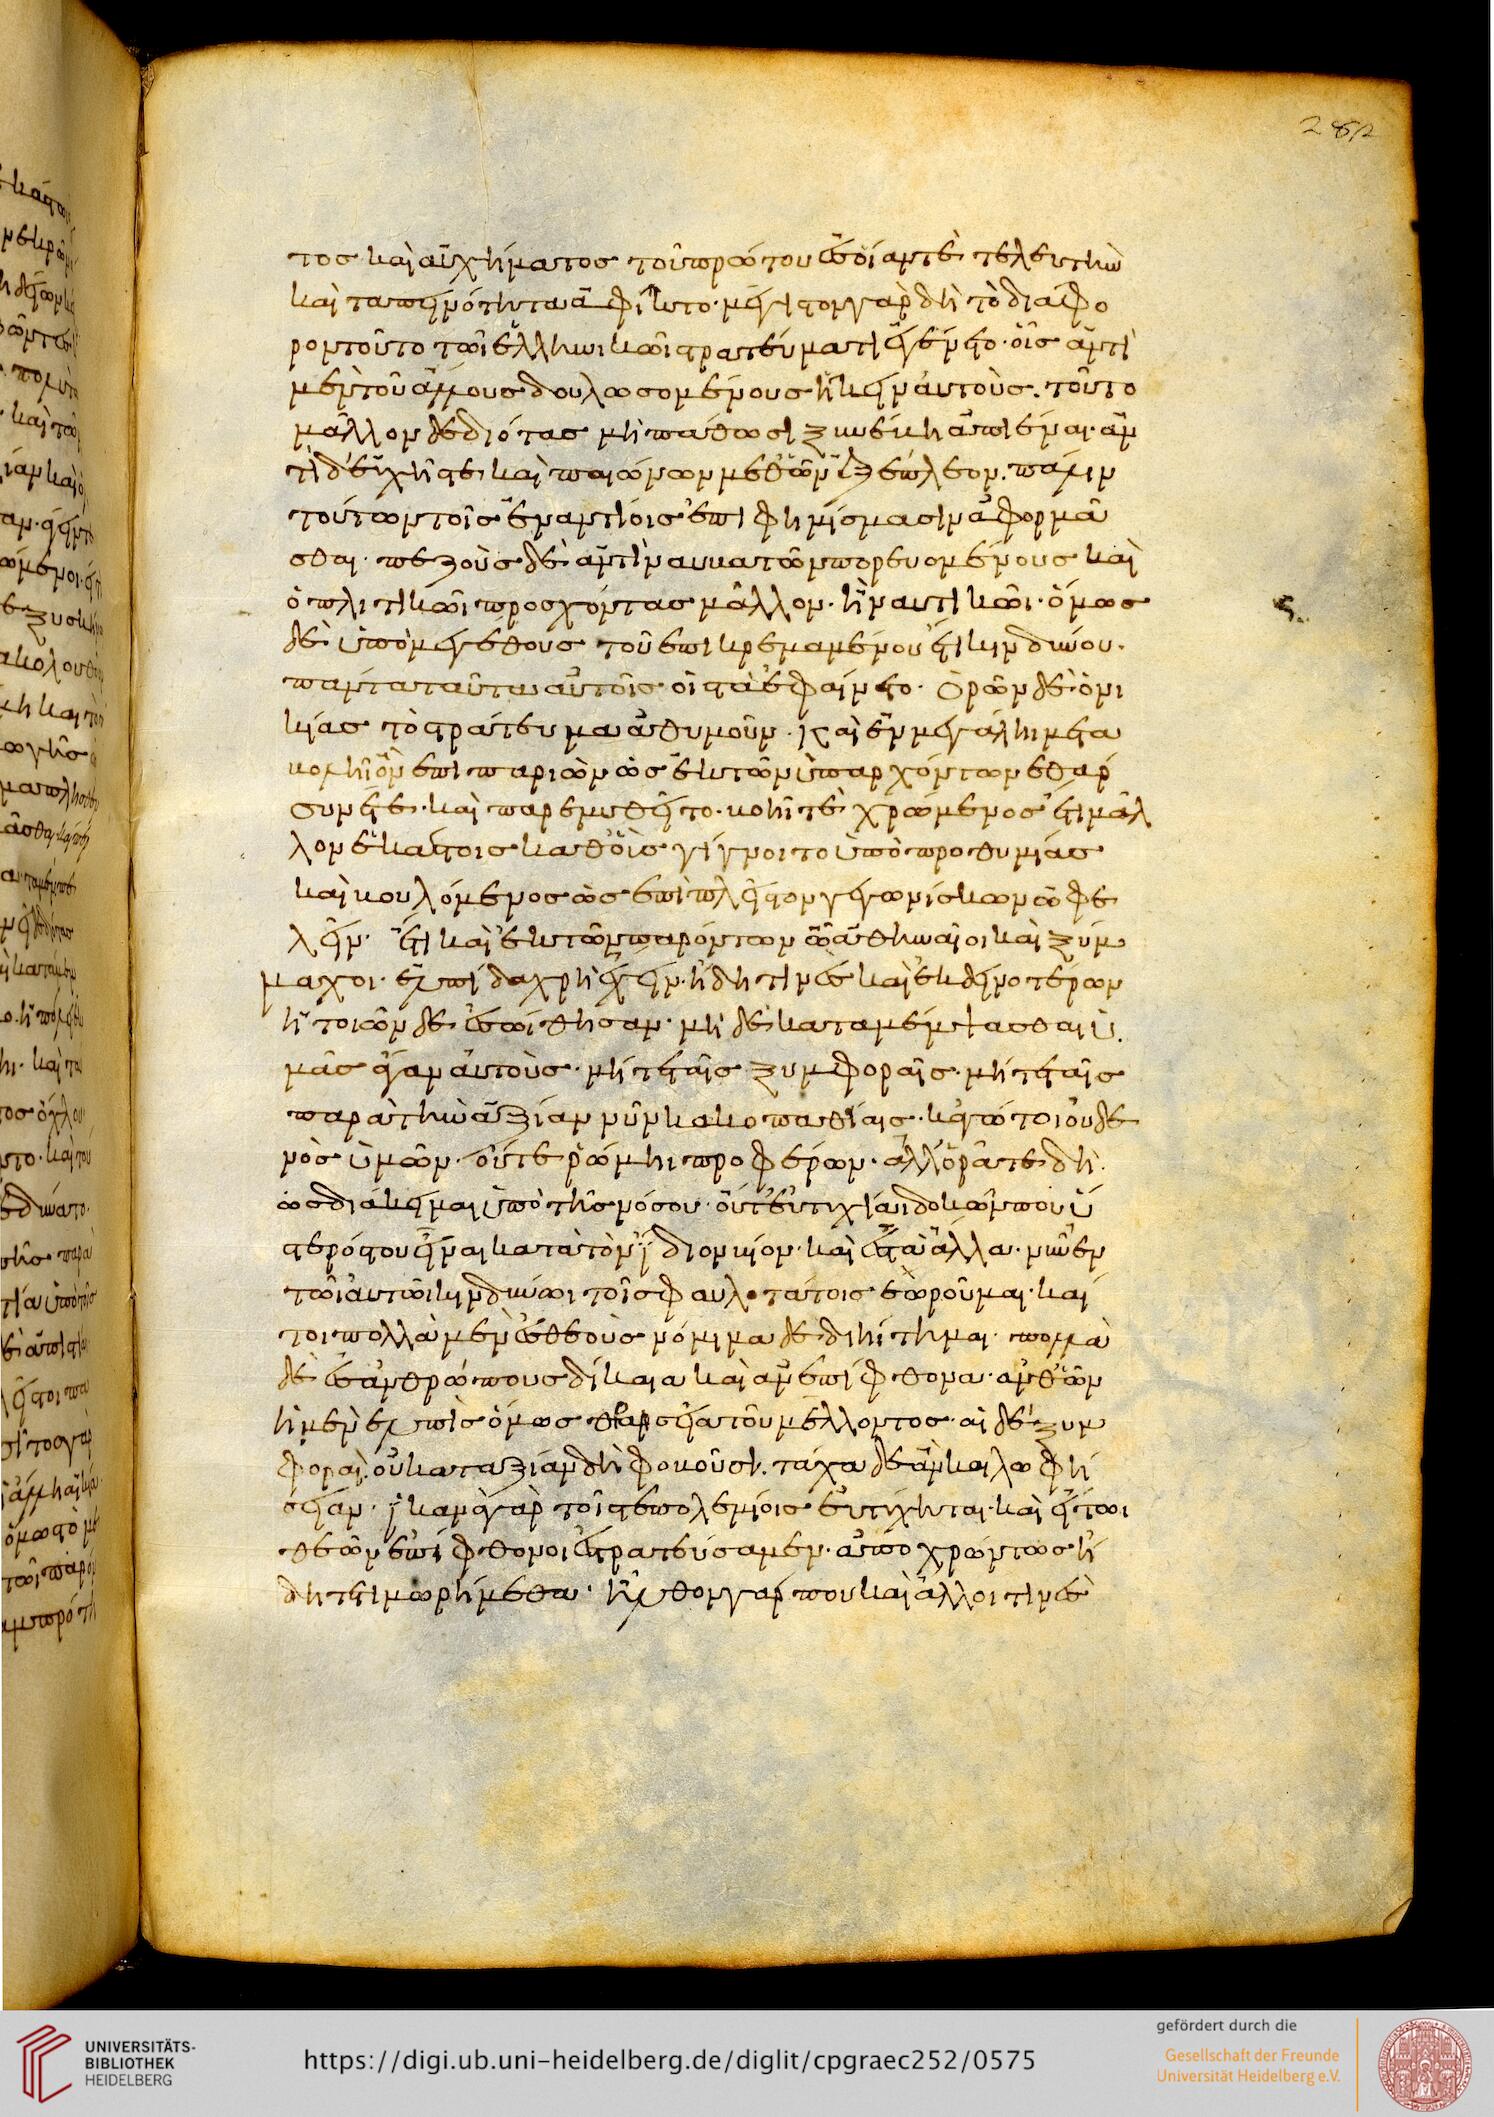 τος καὶ αὐχήματος τοῦ πρώτου ἐς οἵαν τὲ τελευτὴν
καὶ ταπεινότητα ἀφῖκτο· μέγιστον γὰρ δὴ τὸ διάφο
ρον τοῦτο τῶι ἑλληνικῶι στρατεύματι ἐγένετο· οἷς ἀντὶ
μὲν τοῦ ἄλλους δουλωσομένους ἥκειν αὐτοὺς. τοῦτο
μᾶλλον δεδιότας μὴ πάθωσι ξυνέβη ἀπιέναι· ἀν
τὶ δ' εὐχῆς τε καὶ παιώνων μεθ' ὧν ἐξέπλεον. πάλιν
τούτων τοῖς ἐναντίοις ἐπιφημίσμασιν ἀφορμᾶ
σθαι· πεζοὺς δὲ ἀντὶ ναυβατῶν πορευομένους καὶ
ὁπλιτικῶι προσχόντας μᾶλλον· ἢ ναυτικῶι· ὅμως
δὲ ὑπὸ μεγέθους τοῦ ἐπικρεμαμένου ἔτι κινδύνου.
πάντα ταῦτα αὐτοῖς οἰστὰ ἐφαίνετο· Ὁρῶν δὲ ὁ νι
κίας τὸ στράτευμα ἀθυμοῦν· καὶ ἐν μεγάληι μετα
βολῆι ὂν ἐπιπαριὼν ὡς ἐκ τῶν ὑπαρχόντων ἐθάρ
συνέ τε· καὶ παρεμυθεῖτο· βοῆι τὲ χρώμενος ἔτι μᾶλ
λον ἑκάστοις καθ' οἷς γίγνοιτο ὑπὸ προθυμίας
καὶ βουλόμενος ὡς ἐπὶ πλεῖστον γεγωνίσκων ὠφε
λεῖν· ἔτι καὶ ἐκ τῶν παρόντων ὦ ἀθηναῖοι καὶ ξύμ
μαχοι· ἐλπίδα χρὴ ἔχειν· ἤδη τινὲς καὶ ἐκ δεινοτέρων
ἢ τοιῶνδε ἐσώθησαν· μὴ δὲ καταμέμψασθαι ὑ
μᾶς ἄγαν αὐτοὺς· μήτε ταῖς ξυμφοραῖς· μήτε ταῖς
παρὰ τὴν ἀξίαν νῦν κακοπαθίαις· κἀγώ τοι οὐδε
νὸς ὑμῶν· οὔτε ῥώμηι προφέρων· ἀλλ' ὁρᾶτε δὴ
ὡς διάκειμαι ὑπὸ τῆς νόσου· οὔτ' εὐτυχίαι δοκῶν που ὕ
στερός του εἶναι κατὰ τὸν ἴδιον βίον· καὶ ἐς τὰ ἄλλα· νῦν ἐν
τῶι αὐτῶι κινδύνωι τοῖς φαυλοτάτοις ἐωροῦμαι· καί
τοι πολλὰ μὲν ἐς θεοὺς νόμιμα δεδιήιτημαι· πολλὰ
δὲ ἐς ἀνθρώπους δίκαια καὶ ἀνεπίφθονα· ἀνθ' ὧν
ἡ μὲν ἐλπὶς ὅμως θαρσεῖα τοῦ μέλλοντος· αἱ δὲ ξυμ
φοραὶ· οὐ κατ' ἀξίαν δὴ φοβοῦσι· τάχα δὲ ἂν καὶ λωφή
σειαν· ἱκανὰ γὰρ τοῖς τε πολεμίοις εὐτύχηται· καὶ εἴ τωι
θεῶν ἐπίφθονοι ἐστρατεύσαμεν· ἀποχρώντως ἤ
δη τετιμωρήμεθα· ἦλθον γάρ που καὶ ἄλλοι τινὲς
282
UNIVERSITÄTS-
BIBLIOTHEK
HEIDELBERG
https://digi.ub.uni-heidelberg.de/diglit/cpgraec252/0575
gefördert durch die
Gesellschaft der Freunde
Universität Heidelberg e.V.